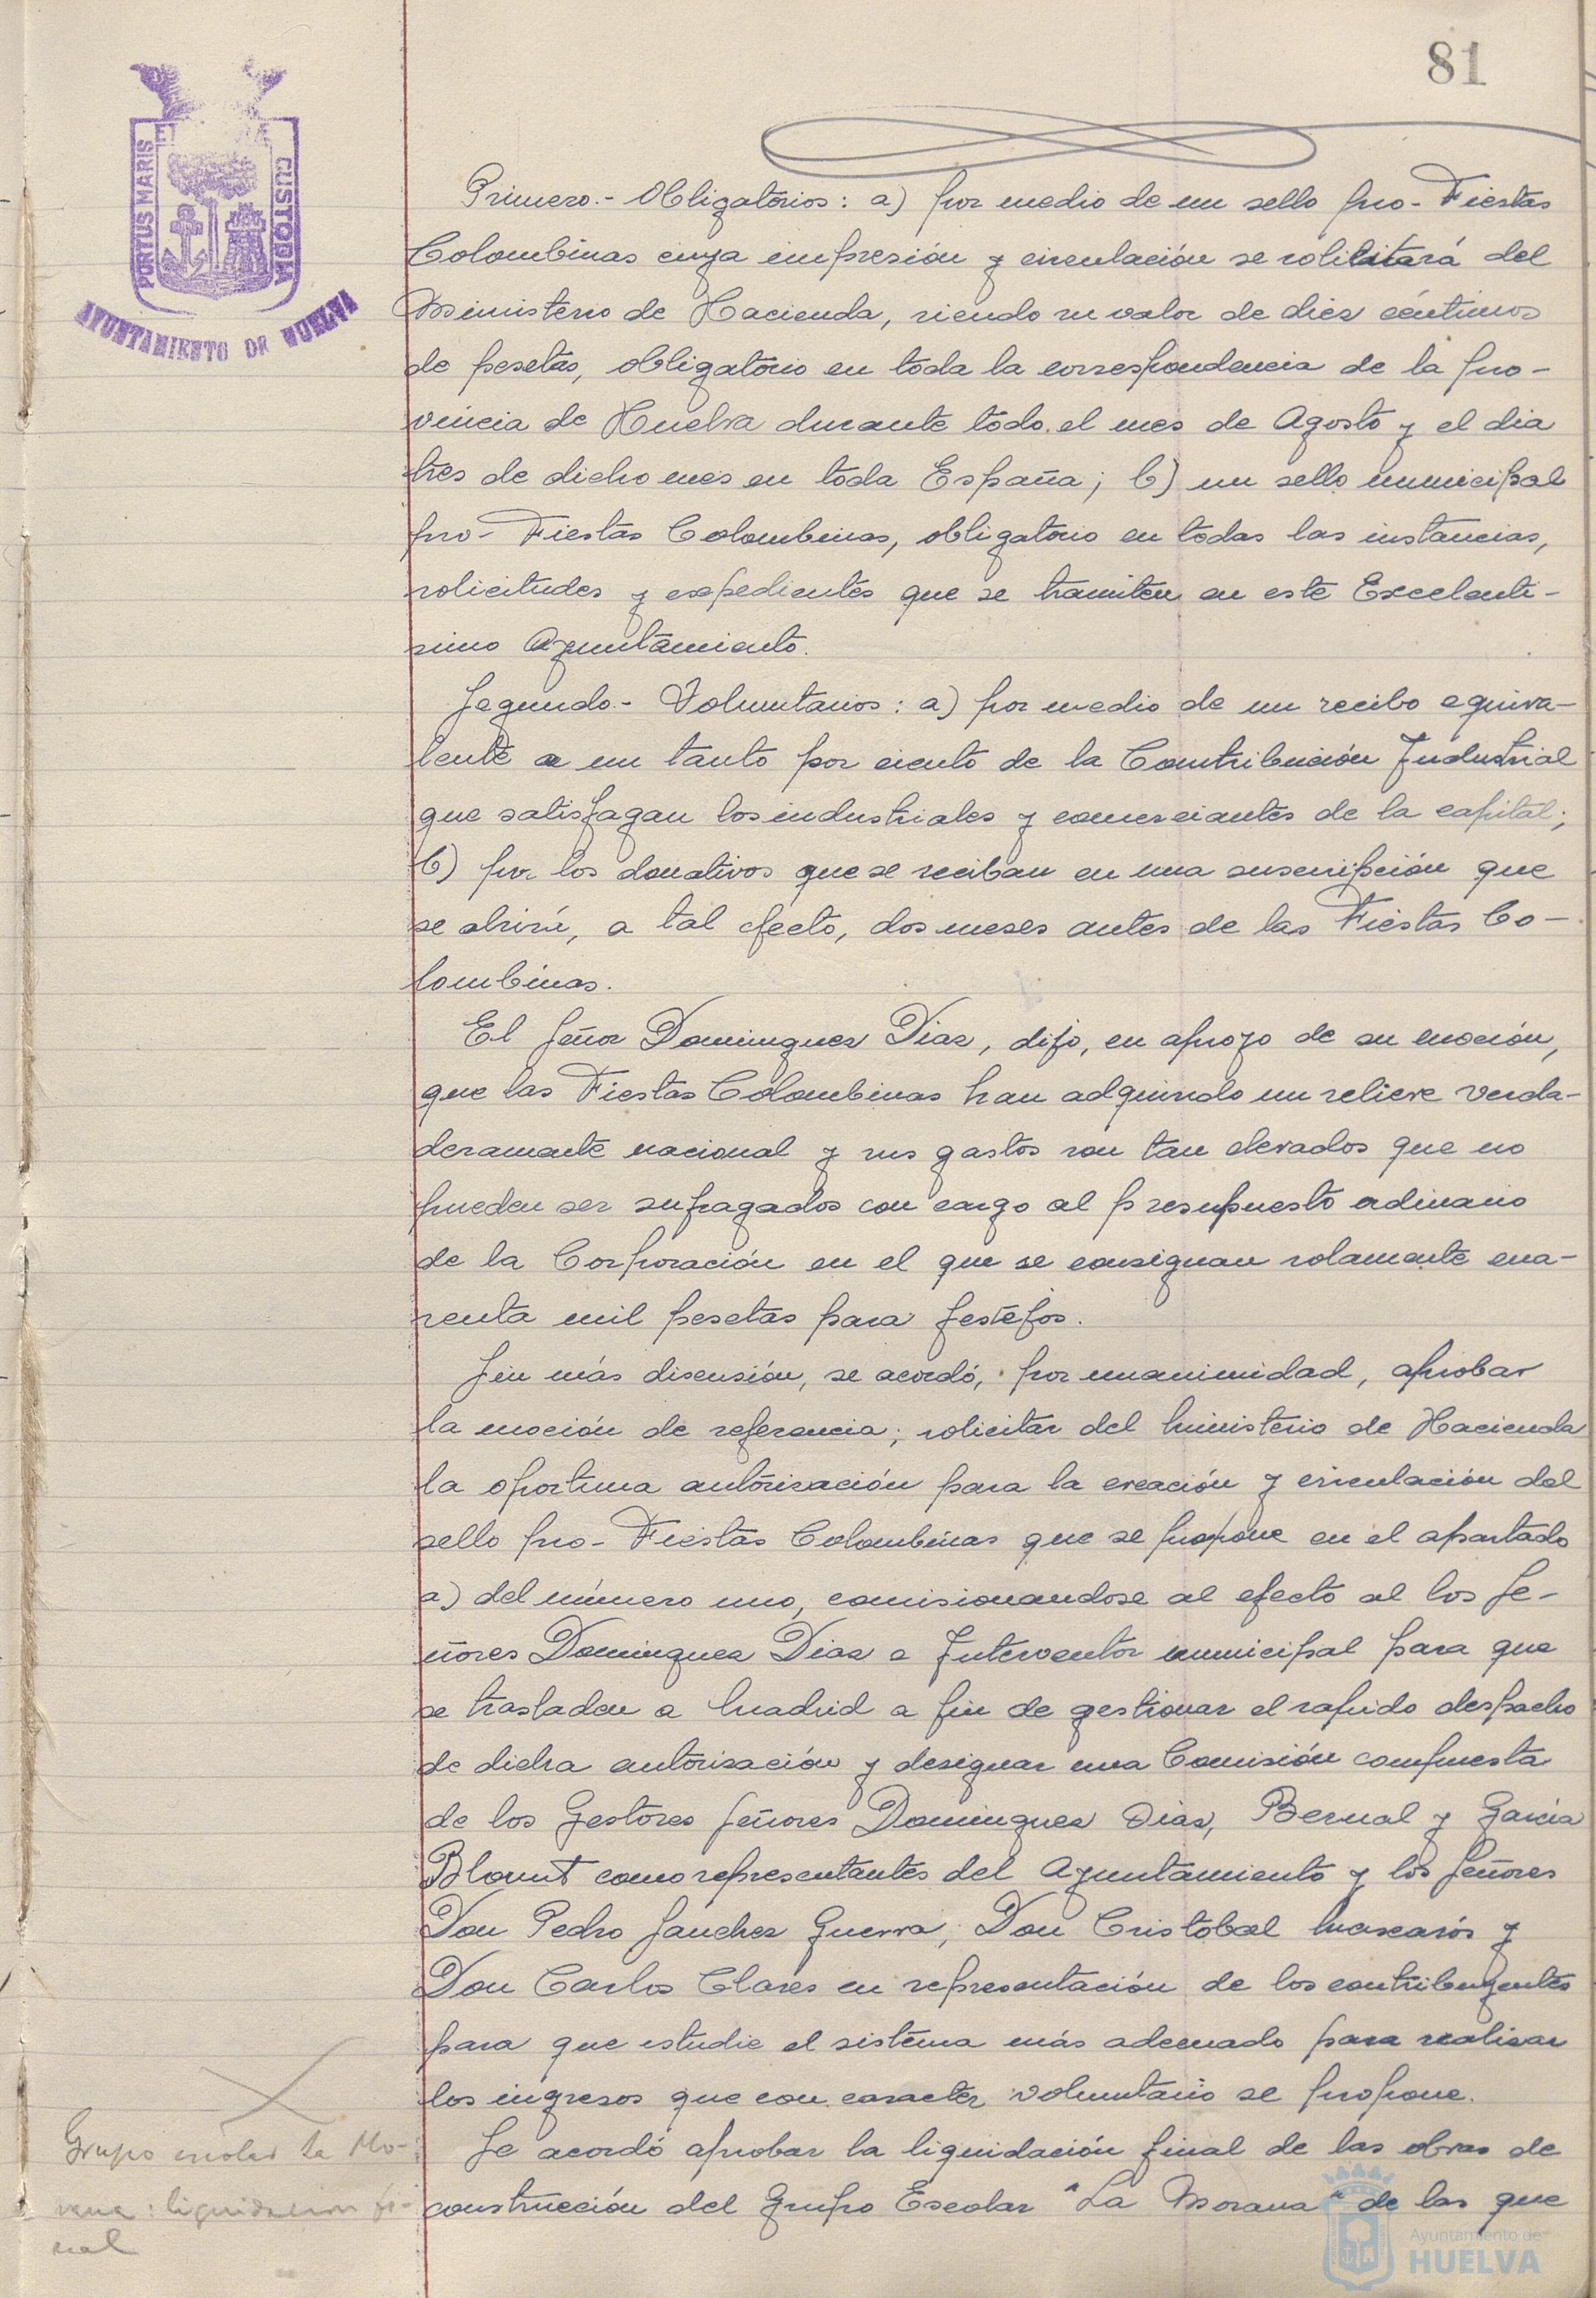 81
PORTUS MARIS ET TERRÆ CUSTODIA
AYUNTAMIENTO DE HUELVA
Primero.- Obligatorios: a) por medio de un sello pro-Fiestas
Colombinas cuya impresión y circulación se solicitará del
Ministerio de Hacienda, siendo su valor de diez céntimos
de pesetas, obligatorio en toda la correspondencia de la pro-
vincia de Huelva durante todo el mes de Agosto y el dia
tres de dicho mes en toda España; b) un sello municipal
pro-Fiestas Colombinas, obligatorio en todas las instancias,
solicitudes y expedientes que se tramiten en este Excelenti-
simo Ayuntamiento.
Segundo.- Voluntarios: a) por medio de un recibo equiva-
lente a un tanto por ciento de la Contribución Industrial
que satisfagan los industriales y comerciantes de la capital;
b) por los donativos que se reciban en una suscripción que
se abrirá, a tal efecto, dos meses antes de las Fiestas Co-
lombinas.
El Señor Dominguez Diaz, dijo, en apoyo de su moción,
que las Fiestas Colombinas han adquirido un relieve verda-
deramente nacional y sus gastos son tan elevados que no
pueden ser sufragados con cargo al presupuesto ordinario
de la Corporación en el que se consignan solamente cua-
renta mil pesetas para festejos.
Sin más discusión, se acordó, por unanimidad, aprobar
la moción de referencia; solicitar del Ministerio de Hacienda
la oportuna autorización para la creación y circulación del
sello pro-Fiestas Colombinas que se propone en el apartado
a) del número uno, comisionandose al efecto al los Se-
ñores Dominguez Diaz e Interventor municipal para que
se trasladen a Madrid a fin de gestionar el rapido despacho
de dicha autorización y designar una Comisión compuesta
de los Gestores Señores Dominguez Diaz, Bernal y García
Blount como representantes del Ayuntamiento y los Señores
Don Pedro Sánchez Guerra, Don Cristobal Mascarós y
Don Carlos Clares en representación de los contribuyentes
para que estudie el sistema más adecuado para realizar
los ingresos que con caracter voluntario se propone.
Se acordó aprobar la liquidación final de las obras de
construcción del Grupo Escolar "La Morana" de las que
Grupo escolar La Mo-
rana: liquidacion fi-
nal
Ayuntamiento de
HUELVA